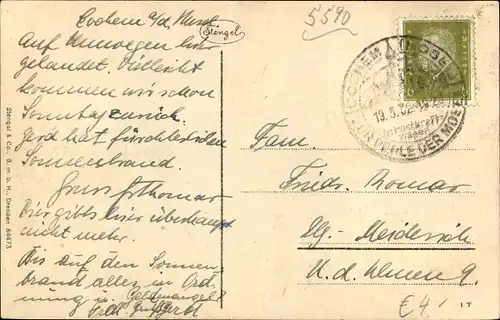 Cochem a/d Mosel
Auf Umwegen hier
gelandet. Vielleicht
kommen wir schon
Sonntag zurück.
Gerd hat fürchterlichen
Sonnenbrand.
Gruss
Bier gibts hier überhaupt
nicht mehr.
Bis auf den Sonnen-
brand alles in Ord-
nung u. Geldmangel?
Gerd
Stengel & Co., G. m. b. H., Dresden 64473
Stengel
5590
COCHEM
19.5.32
PERLE DER MOSEL
Fam.
Friedr. Romar
Dbg-Meiderich
U. d. Ulmen 9.
€ 4,-
1 T